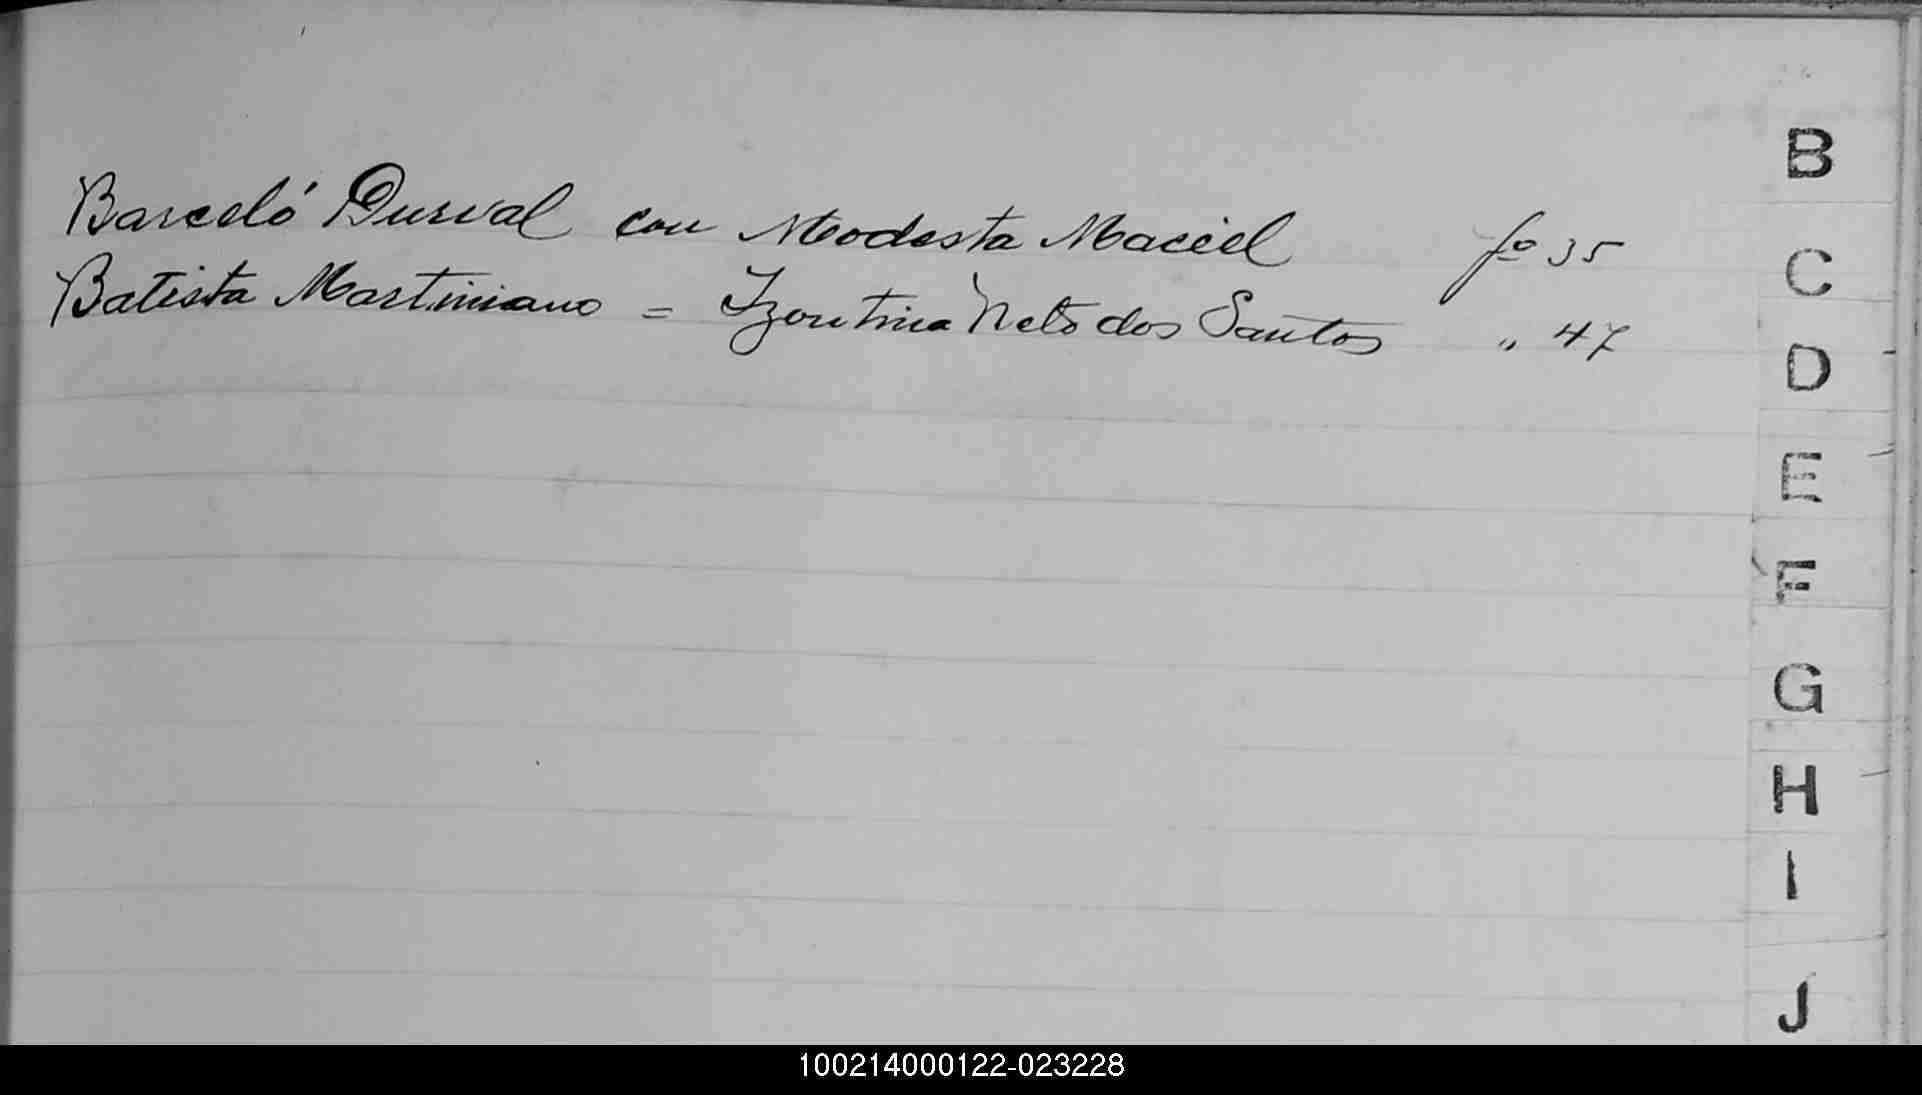 Barceló Durval con Modesta Maciel fo 35
Batista Martiniano = Izontina Neto dos Santos " 47
B
C
D
E
F
G
H
I
J
100214000122-023228